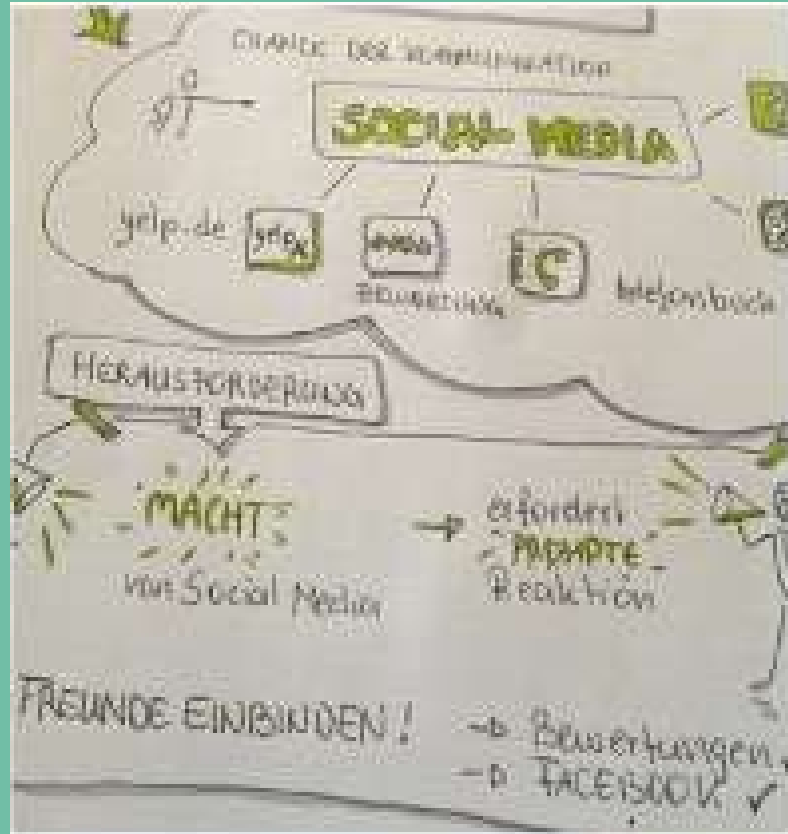 CHANCE DER KOMMUNIKATION
SOCIAL MEDIA
yelp.de yelp
BEWERTUNG
telefonbuch
HERAUSFORDERUNG
MACHT
von Social Media
→ erfordert
PROMPTE
Reaktion
FREUNDE EINBINDEN!
→ Bewertungen ✓
→ FACEBOOK ✓